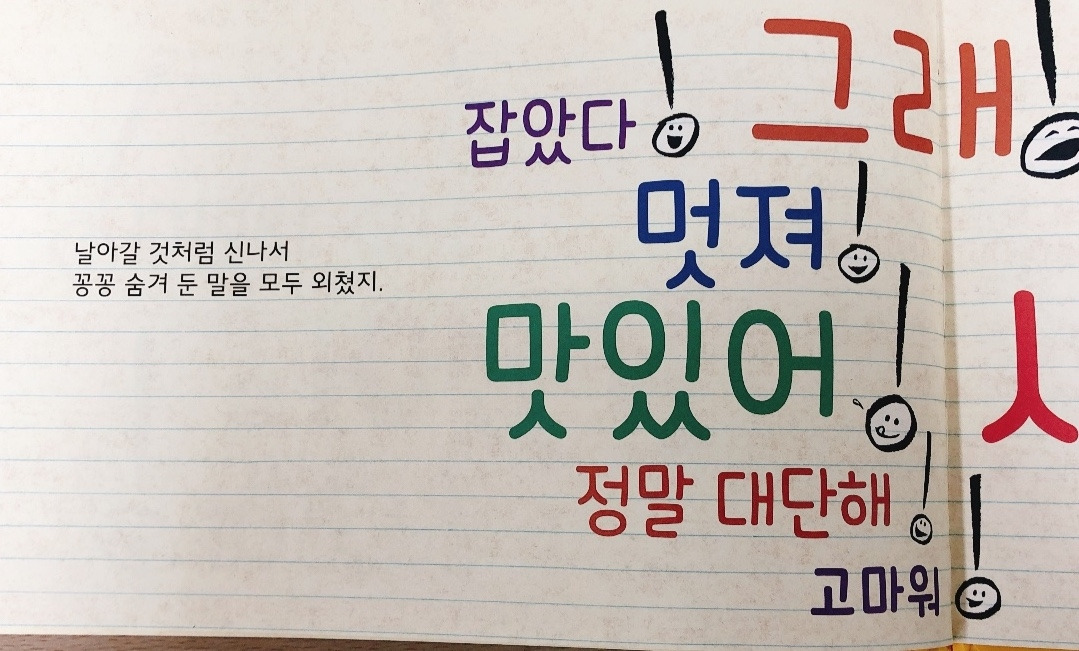 잡았다! 그래!
멋져!
날아갈 것처럼 신나서
꽁꽁 숨겨 둔 말을 모두 외쳤지.
맛있어!
정말 대단해!
고마워!